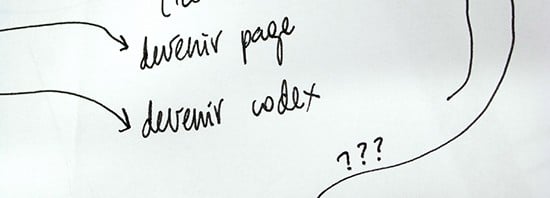 devenir page
devenir codex
???